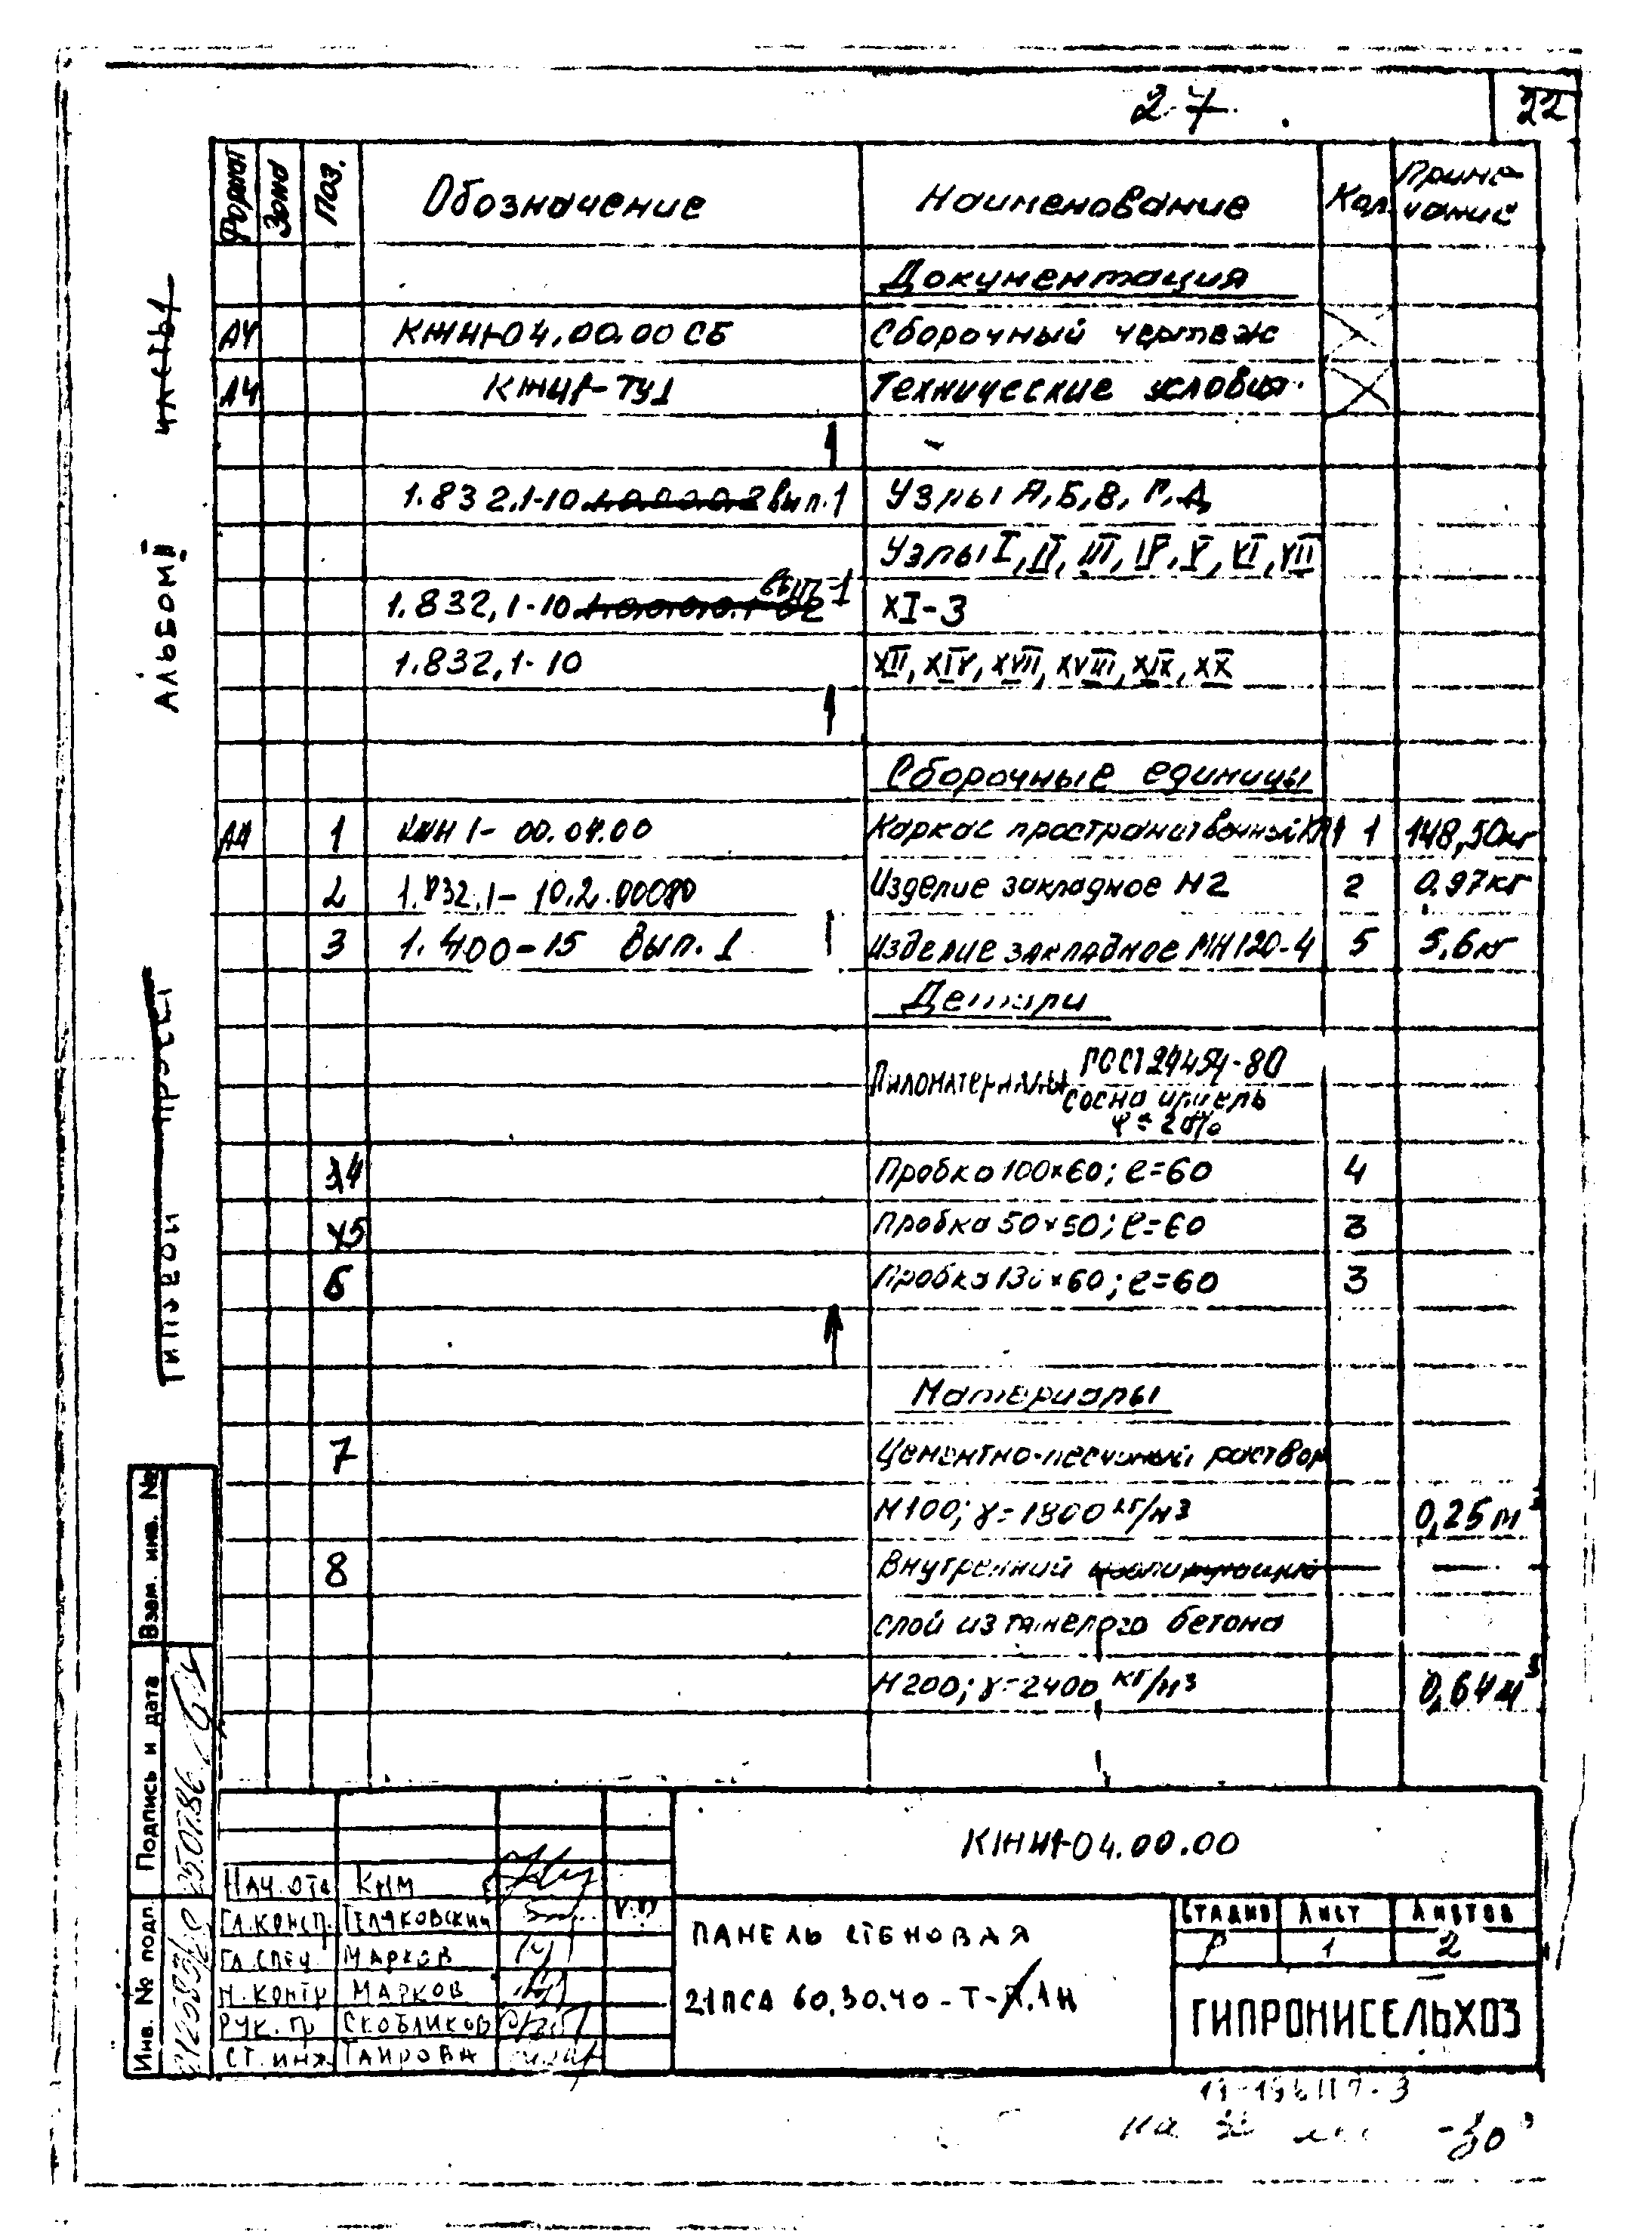 27
22
Формат Зона Поз. Обозначение Наименование Кол. Приме-
чание
Документация
А4 КЖИ1-04.00.00 СБ Сборочный чертеж
А4 КЖИ1-ТУ1 Технические условия
1.832.1-10 вып.1 Узлы А, Б, В, Г, Д
Узлы I, II, III, IV, V, VI, VII
1.832.1-10 вып-1 XI-3
1.832.1-10 XII, XIV, XVII, XVIII, XIX, XX
Сборочные единицы
А4 1 КЖИ1-00.04.00 Каркас пространственный КП1 1 148,50кг
2 1.832.1-10.2.00080 Изделие закладное Н2 2 0.97кг
3 1.400-15 Вып. 1 Изделие закладное МН120-4 5 5,6кг
Детали
Пиломатериалы ГОСТ 24454-80
сосна
4 Пробка 100×60; ℓ=60 4
5 Пробка 50×50; ℓ=60 3
6 Пробка 130×60; ℓ=60 3
Материалы
7 Цементно-песчаный раствор
М100; γ=1800 кг/м3 0,25м3
8 Внутренний изолирующий
слой из тяжелого бетона
М200; γ=2400 кг/м3 0,64м3
КЖИ1-04.00.00
Нач.отд Ким
Гл.констр. Теляковский
Гл.спец Марков
Н.контр Марков
Рук.гр Скобликов
Ст.инж. Таирова
ПАНЕЛЬ СТЕНОВАЯ
21ПСД 60.30.40-Т-
Стадия Лист Листов
Р 1 2
ГИПРОНИСЕЛЬХОЗ
АЛЬБОМ III ЧАСТЬ 1
Типовой проект
Взам. инв. №
Подпись и дата 25.07.86
Инв. № подл.